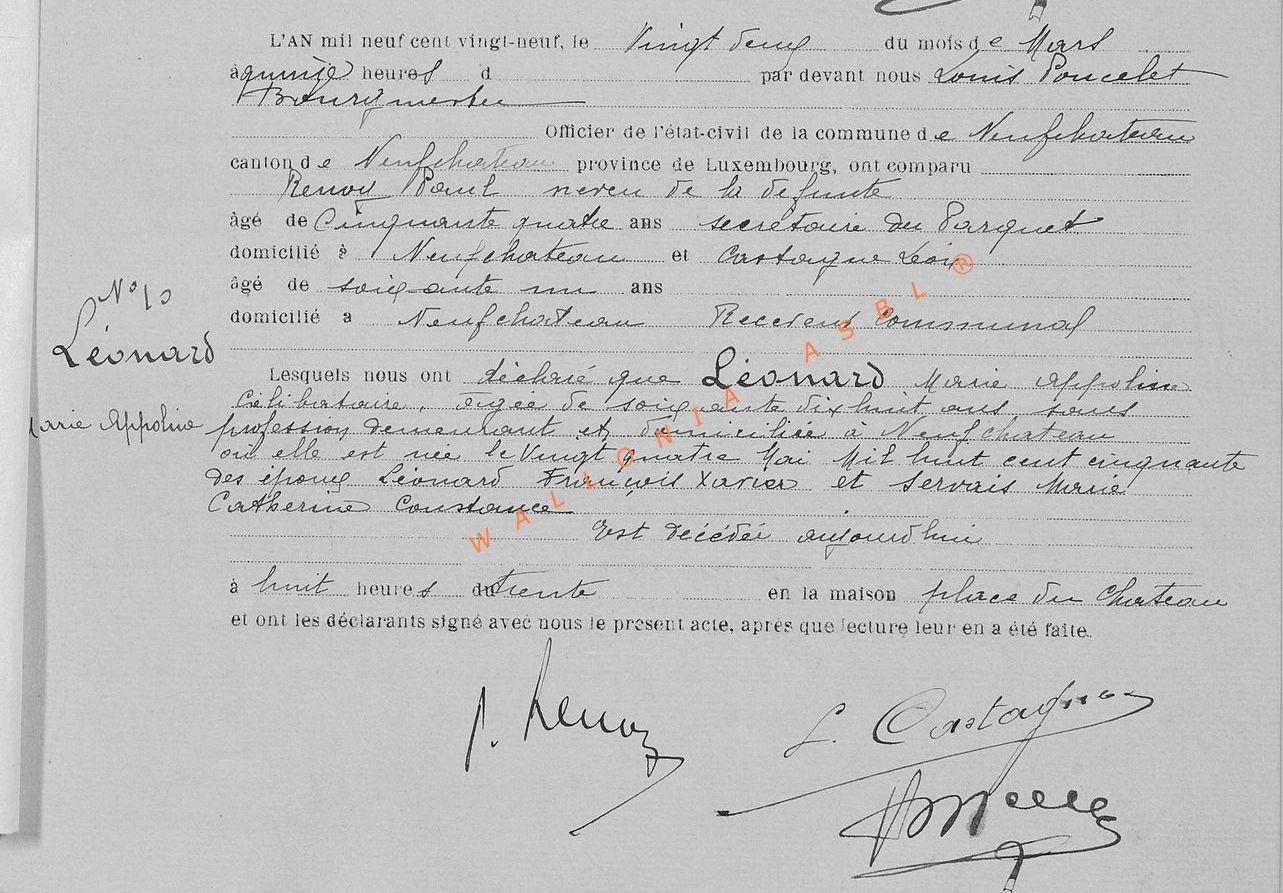 L'AN mil neuf cent vingt-neuf, le Vingt deux du mois de Mars
à quinze heures d par devant nous Louis Poncelet
Bourgmestre
Officier de l'état-civil de la commune de Neufchateau
canton de Neufchateau province de Luxembourg, ont comparu
Renoy Paul neveu de la defunte
âgé de Cinquante quatre ans secrétaire du Parquet
domicilié à Neufchateau et Castagne Léon
âgé de soixante un ans
N° 10
domicilié a Neufchateau Receveur Communal
Léonard
Lesquels nous ont déclaré que Léonard Marie Appoline
Célibataire, âgée de soixante dix huit ans, sans
Marie Appoline
profession demeurant et domiciliée à Neufchateau
où elle est née le Vingt quatre Mai Mil huit cent cinquante
des époux Léonard François Xavier et Servais Marie
Catherine Constance
Est décédée aujourd'hui
à huit heures du trente en la maison place du Chateau
et ont les déclarants signé avec nous le present acte, après que lecture leur en a été faite.
P. Renoy
L. Castagne
WALLONIA ASBL ®